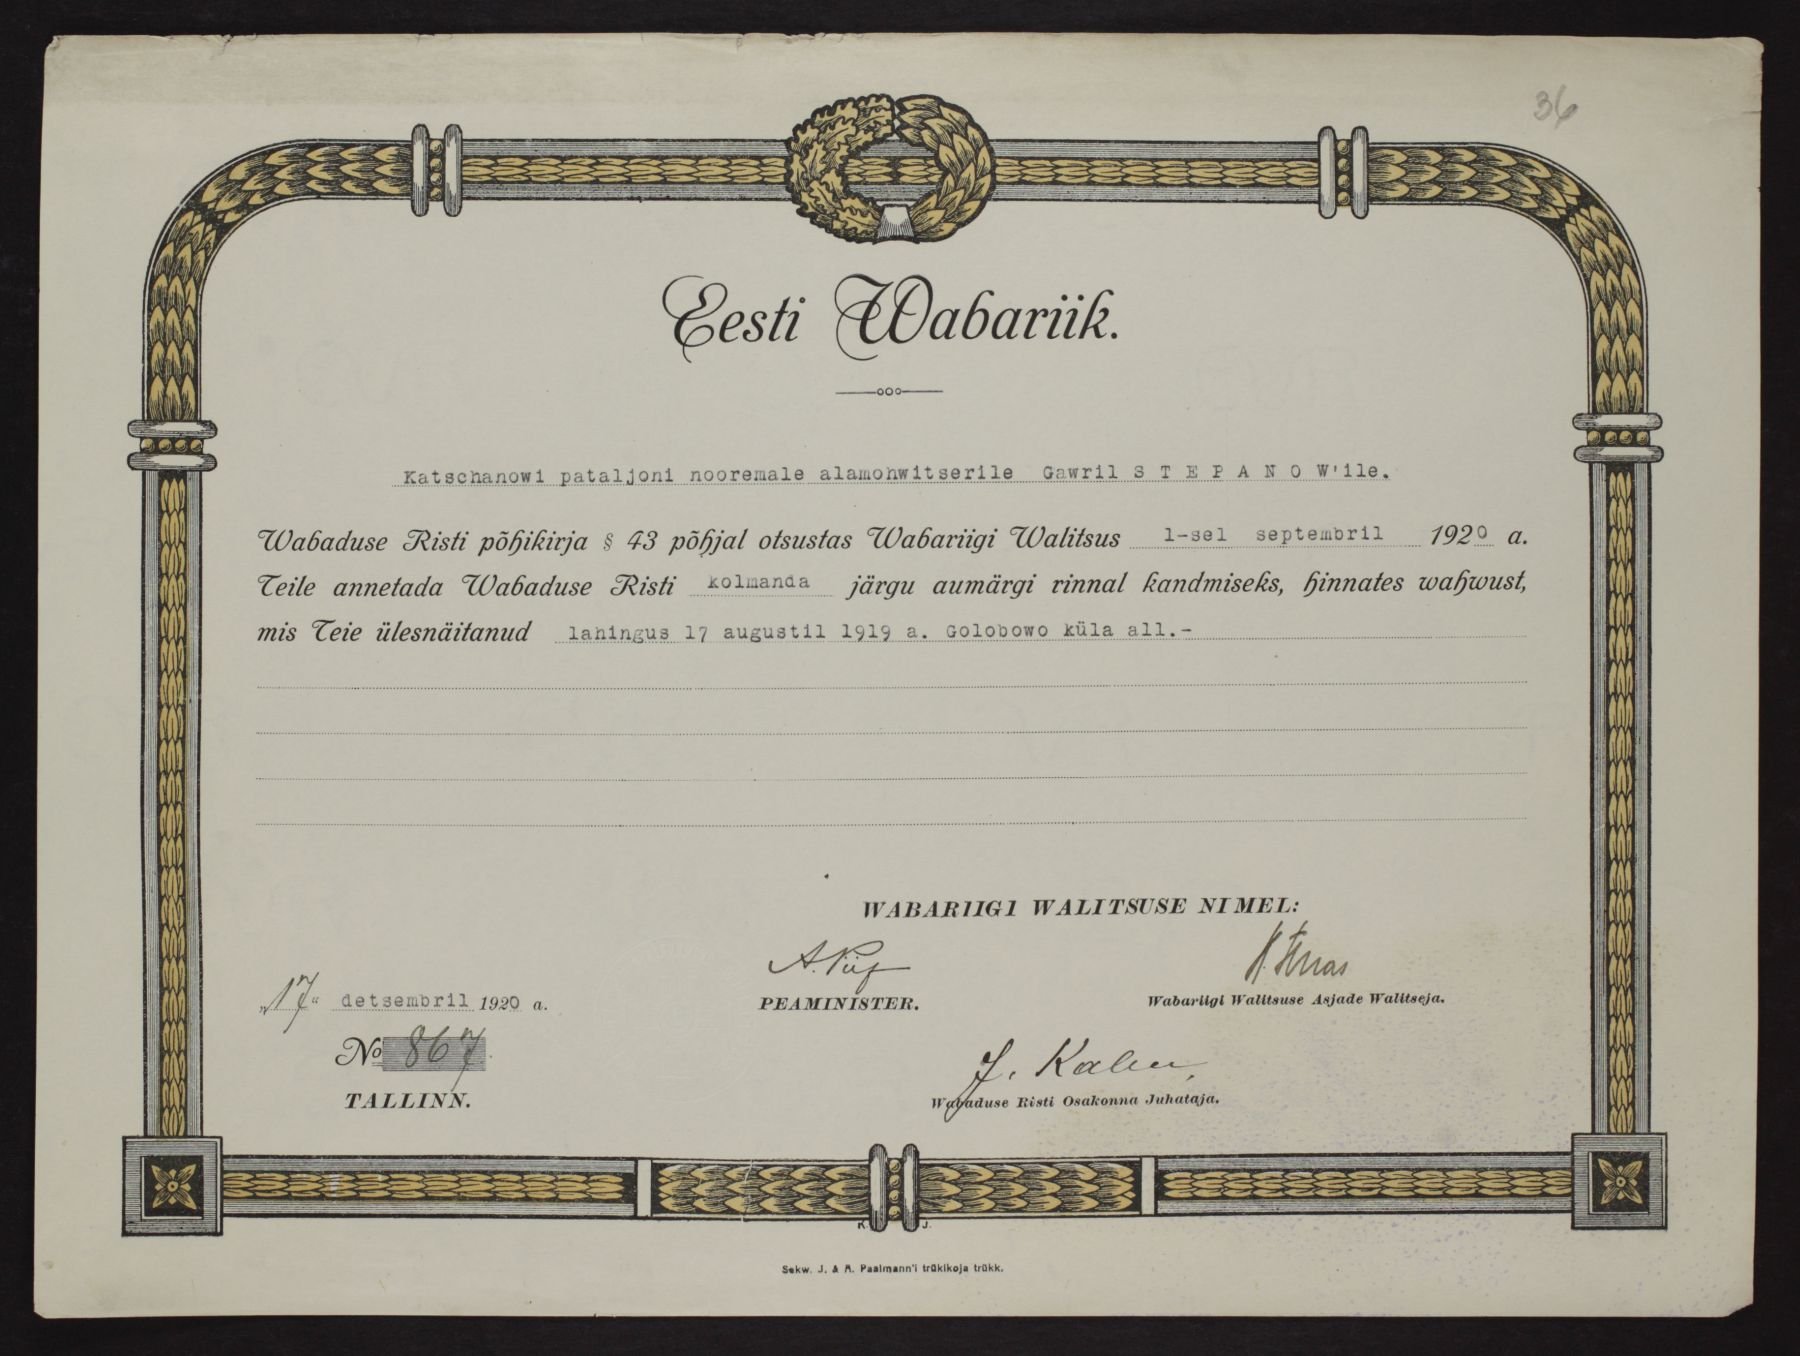 36
Eesti Wabariik.
Katschanowi pataljoni nooremale alamohwitserile Gawril S T E P A N O W'ile.
Wabaduse Risti põhikirja § 43 põhjal otsustas Wabariigi Walitsus 1-sel septembril 1920 a.
Teile annetada Wabaduse Risti kolmanda järgu aumärgi rinnal kandmiseks, hinnates wahwust,
mis Teie ülesnäitanud lahingus 17 augustil 1919 a. Golobowo küla all.-
WABARIIGI WALITSUSE NIMEL:
A. Piip
PEAMINISTER.
Wabariigi Walitsuse Asjade Walitseja.
"17" detsembril 1920 a.
No 867
TALLINN.
J. Kalm
Wabaduse Risti Osakonna Juhataja.
K. J.
Sekw. J. & A. Paalmann'i trükikoja trükk.